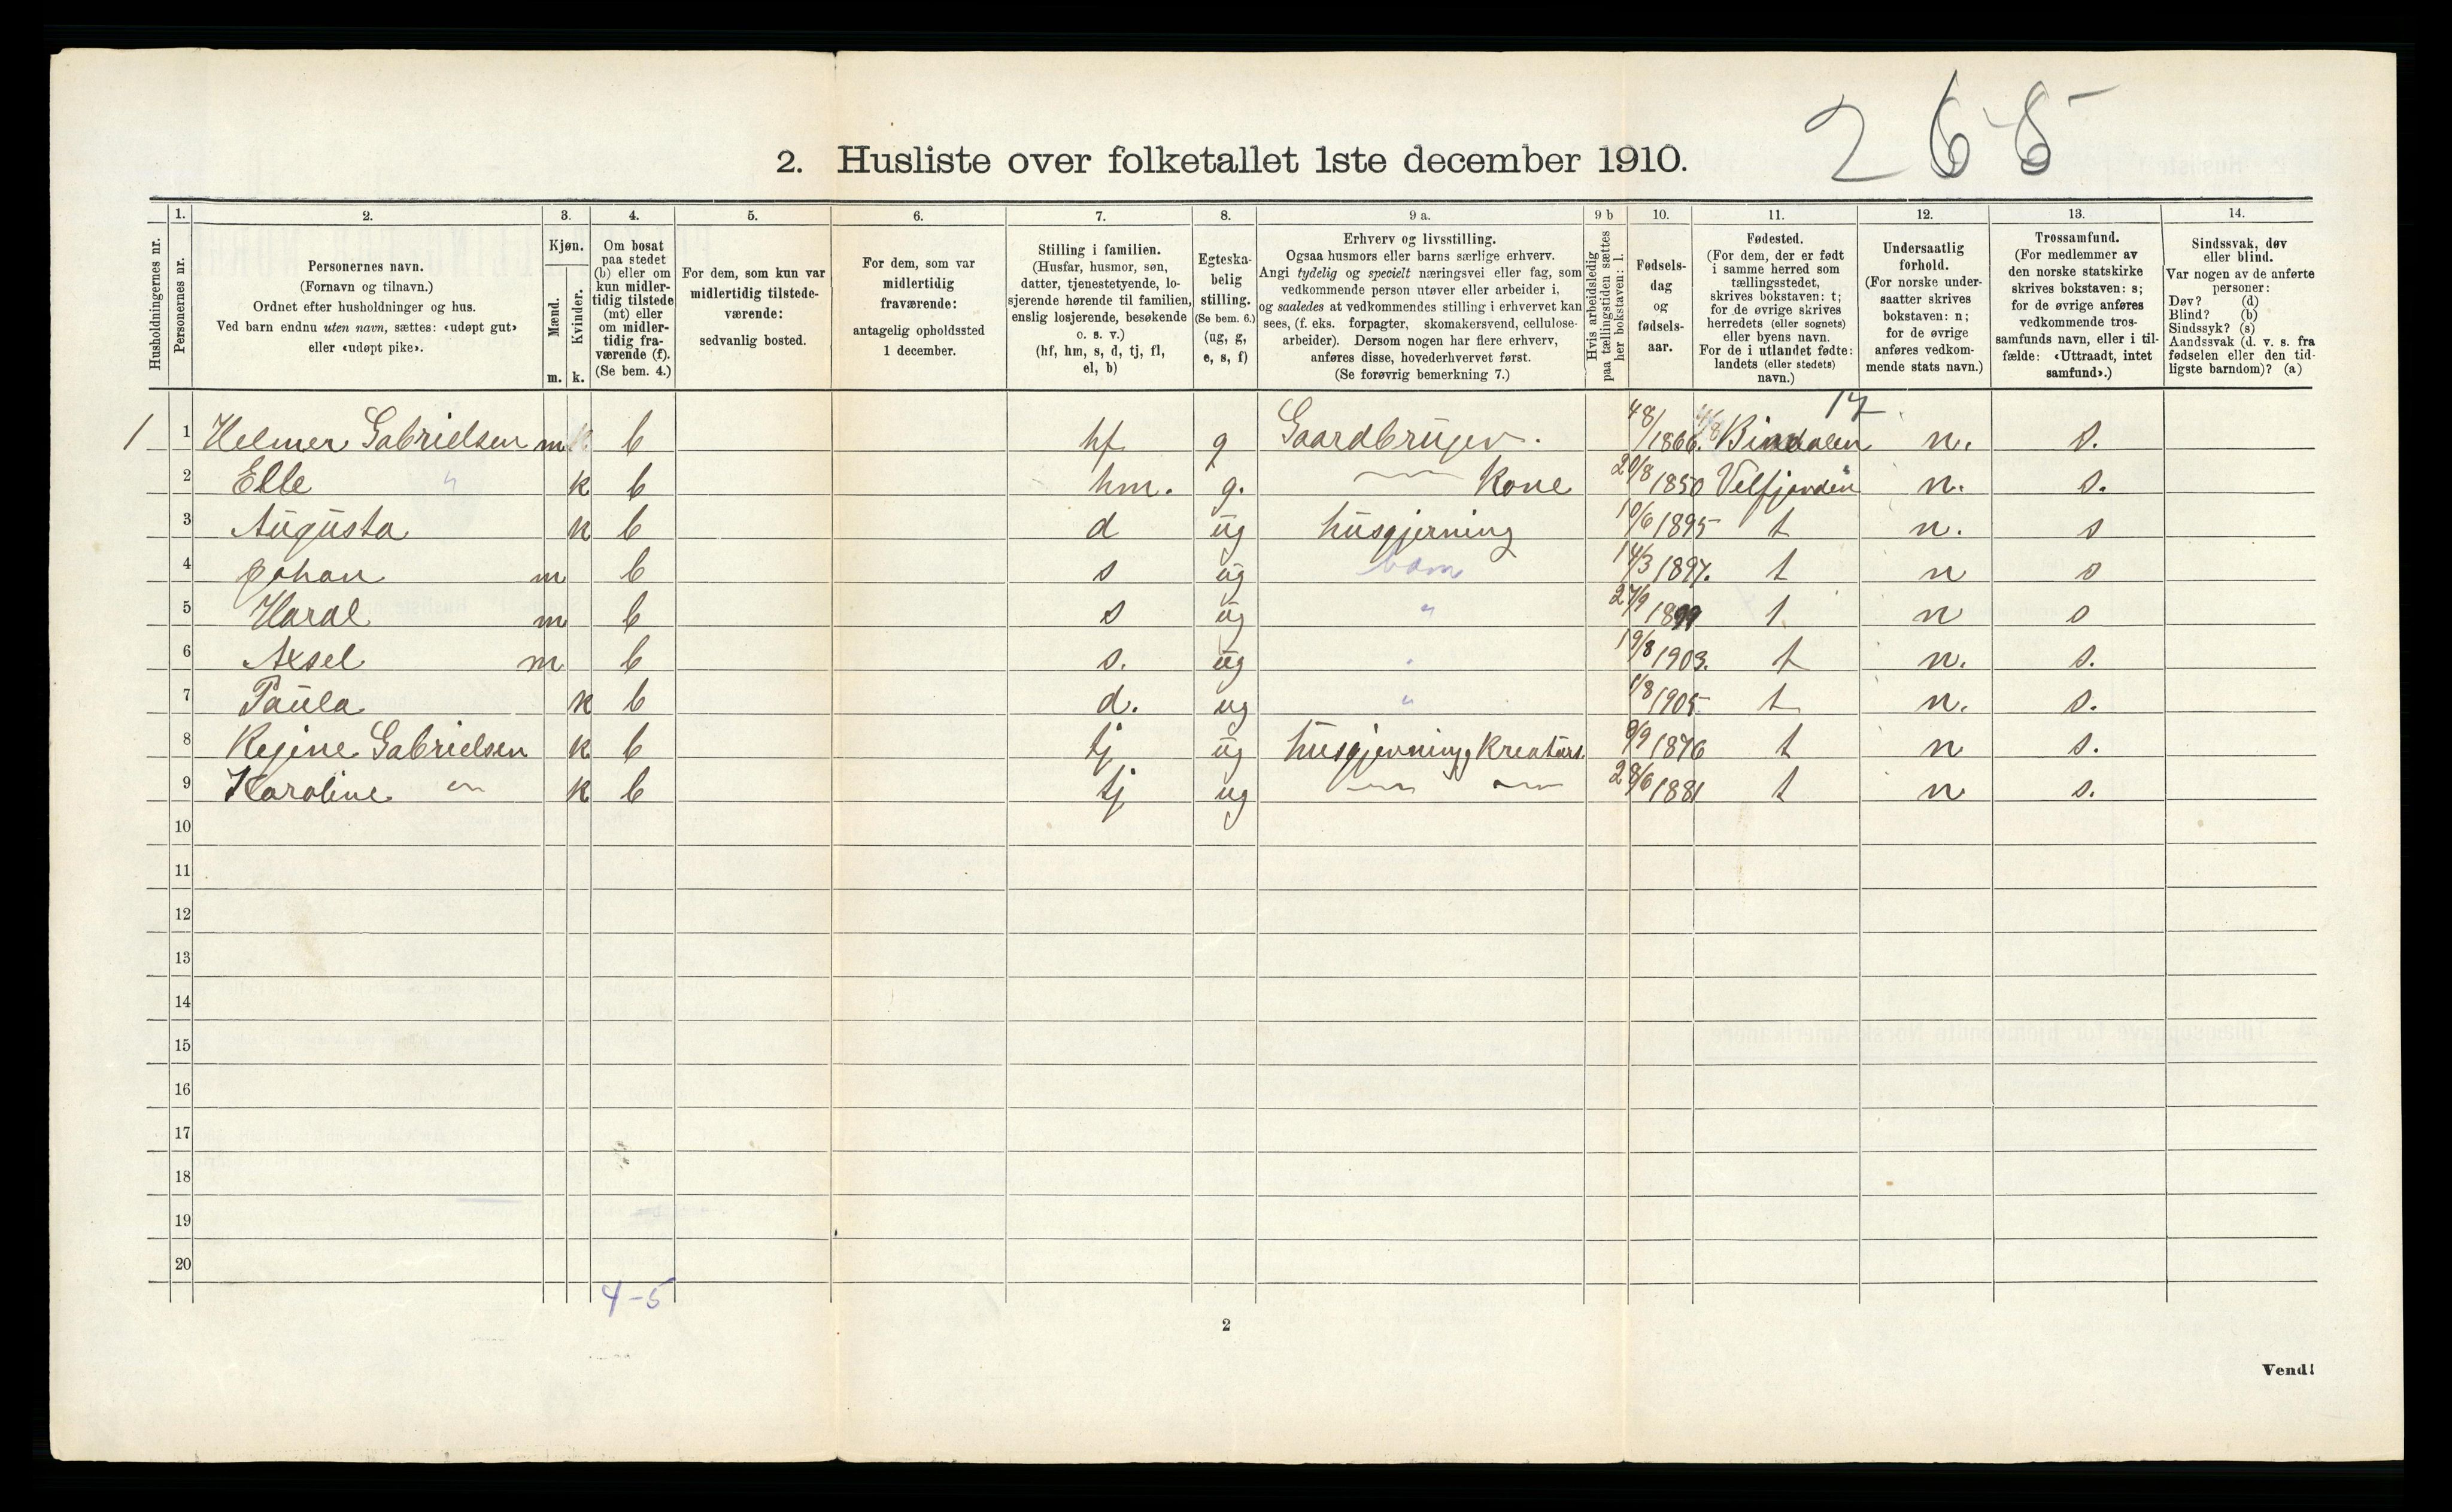 265
2. Husliste over folketallet 1ste december 1910.
Husholdningernes nr.
1. Personernes nr.
2. Personernes navn. (Fornavn og tilnavn.) Ordnet efter husholdninger og hus. Ved barn endnu uten navn, sættes: «udøpt gut» eller «udøpt pike».
3. Kjøn. Mænd. m. Kvinder. k.
4. Om bosat paa stedet (b) eller om kun midler- tidig tilstede (mt) eller om midler- tidig fra- værende (f). (Se bem. 4.)
5. For dem, som kun var midlertidig tilstede- værende: sedvanlig bosted.
6. For dem, som var midlertidig fraværende: antagelig opholdssted 1 december.
7. Stilling i familien. (Husfar, husmor, søn, datter, tjenestetyende, lo- sjerende hørende til familien, enslig losjerende, besøkende o. s. v.) (hf, hm, s, d, tj, fl, el, b)
8. Egteska- belig stilling. (Se bem. 6.) (ug, g, e, s, f)
9 a. Erhverv og livsstilling. Ogsaa husmors eller barns særlige erhverv. Angi tydelig og specielt næringsvei eller fag, som vedkommende person utøver eller arbeider i, og saaledes at vedkommendes stilling i erhvervet kan sees, (f. eks. forpagter, skomakersvend, cellulose- arbeider). Dersom nogen har flere erhverv, anføres disse, hovederhvervet først. (Se forøvrig bemerkning 7.)
9 b Hvis arbeidsledig paa tællingstiden sættes her bokstaven: l.
10. Fødsels- dag og fødsels- aar.
11. Fødested. (For dem, der er født i samme herred som tællingsstedet, skrives bokstaven: t; for de øvrige skrives herredets (eller sognets) eller byens navn. For de i utlandet fødte: landets (eller stedets) navn.)
12. Undersaatlig forhold. (For norske under- saatter skrives bokstaven: n; for de øvrige anføres vedkom- mende stats navn.)
13. Trossamfund. (For medlemmer av den norske statskirke skrives bokstaven: s; for de øvrige anføres vedkommende tros- samfunds navn, eller i til- fælde: «Uttraadt, intet samfund».)
14. Sindssvak, døv eller blind. Var nogen av de anførte personer: Døv? (d) Blind? (b) Sindssyk? (s) Aandssvak (d. v. s. fra fødselen eller den tid- ligste barndom)? (a)
17
1 1 Helmer Gabrielsen m b hf g Gaardbruger. 1866. Bindalen n. s.
2 Elle " k b hm. g. Kone 20/8 1850 Velfjorden n. s.
3 Augusta k b d ug husgjerning 10/6 1895 t n. s
4 Johan m b s ug barn 14/3 1897. t n s
5 Haral m b s ug " 27/9 1899 t n s
6 Axsel m b s. ug " 19/8 1903. t n. s.
7 Paula k b d. ug " 1/8 1905 t n. s.
8 Regine Gabrielsen k b tj ug husgjerning, Kreaturs. 8/9 1876 t n s.
9 Karoline k b tj ug 28/6 1881 t n s.
10
11
12
13
14
15
16
17
18
19
20
4-5
2
Vend!